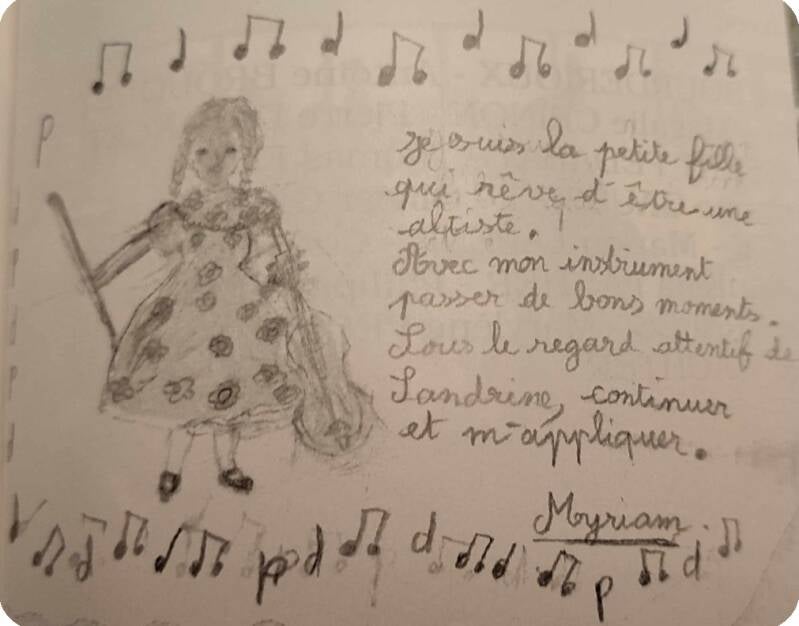 Je suis la petite fille
qui rêve d'être une
altiste.
Avec mon instrument
passer de bons moments.
Sous le regard attentif de
Sandrine, continuer
et m'appliquer.
Myriam.